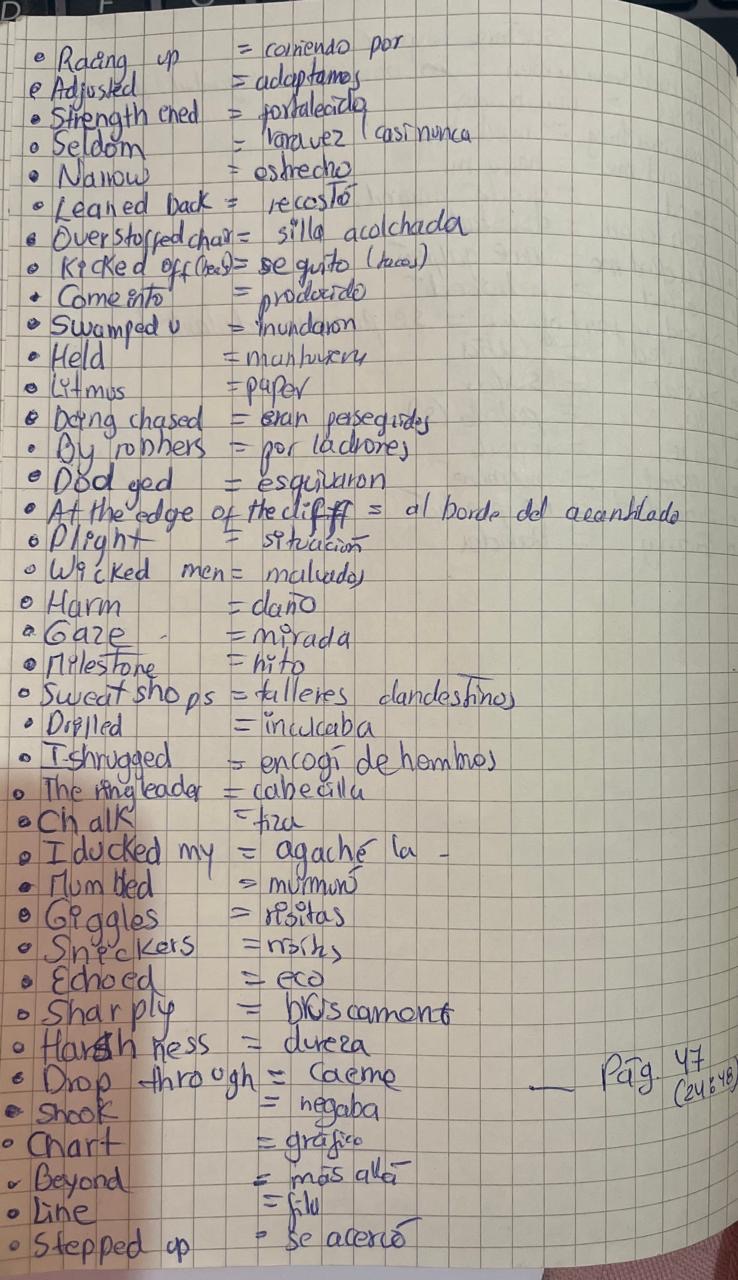 • Racing up = corriendo por
• Adjusted = adaptamos
• Strength ened = fortalecido
• Seldom = rara vez / casi nunca
• Narrow = estrecho
• Leaned back = recostó
• Overstoffed chair = silla acolchada
• Kicked off = se quito (tacos)
• Come into = producido
• Swamped = inundaron
• Held = mantuvieron
• Litmus = paper
• Being chased = eran perseguidos
• By robbers = por ladrones
• Dodged = esquivaron
• At the edge of the cliff = al borde del acantilado
• Plight = situación
• Wicked men = malvados
• Harm = daño
• Gaze = mirada
• Milestone = hito
• Sweat shops = talleres clandestinos
• Drilled = inculcaba
• I shrugged = encogí de hombros
• The ringleader = cabecilla
• Chalk = tiza
• I ducked my = agaché la -
• Mumbled = murmuró
• Giggles = risitas
• Snickers = risitas
• Echoed = eco
• Sharply = bruscament
• Harsh ness = dureza
• Drop through = Caeme — Pág. 47
(24:48)
• Shook = negaba
• Chart = gráfico
• Beyond = más allá
• Line = fila
• Stepped up = se acercó